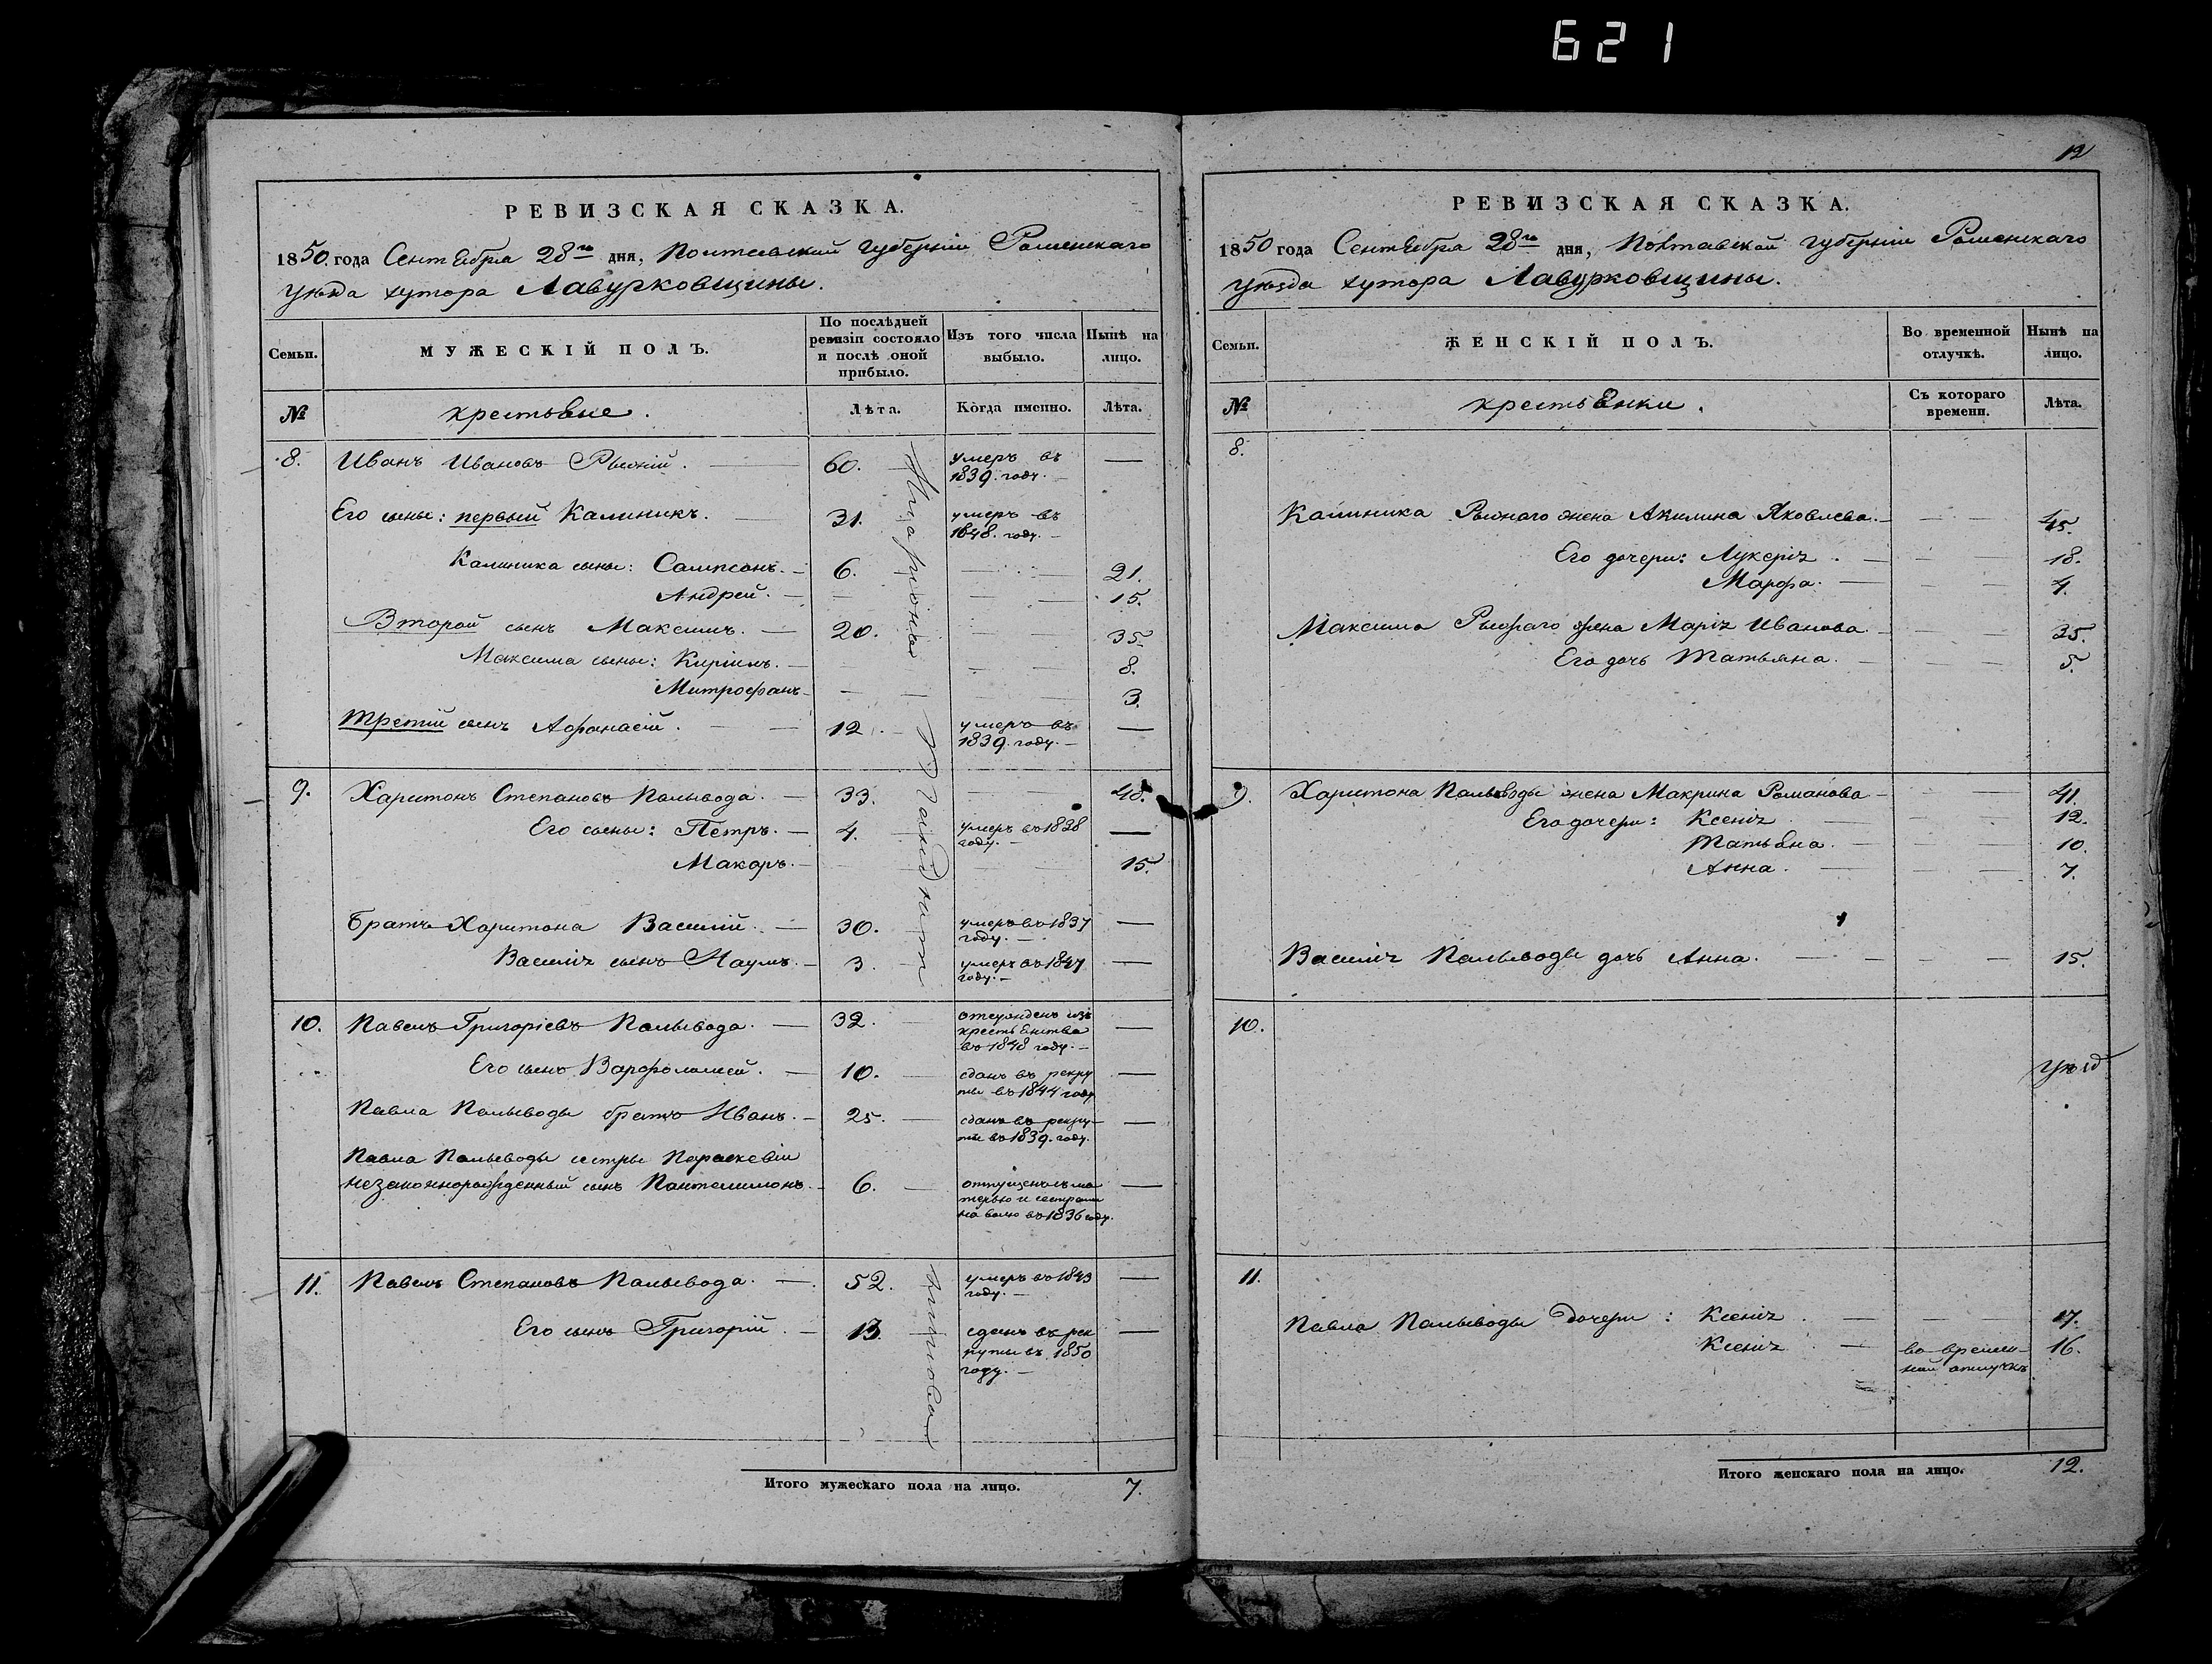 621
12
РЕВИЗСКАЯ СКАЗКА.
1850. года Сентября 28го дня, Полтавской губерніи Роменскаго
уѣзда хутора Лавурковщины.
Семьи.
МУЖЕСКІЙ ПОЛЪ.
По послѣдней ревизіи состояло и послѣ оной прибыло.
Изъ того числа выбыло.
Нынѣ на лицо.
№
крестьяне.
Лѣта.
Когда именно.
Лѣта.
8. Иванъ Ивановъ Рыжій. 60. умеръ въ 1839. году. —
Его сыны: первый Калиникъ. 31. умеръ въ 1848. году. —
Калиника сыны: Сампсонъ. 6. — 21.
Андрей. — — 15.
Второй сынъ Максимъ. 20. 35.
Максима сыны: Кирілъ. — — 8.
Митрофанъ — — 3.
Третій сынъ Афанасій. 12. умеръ въ 1839. году. —
9. Харитонъ Степановъ Палывода. 33. — 48.
Его сыны: Петръ. 4. умеръ въ 1838 году. —
Макаръ. — — 15.
Братъ Харитона Василій. 30. умеръ въ 1837 году. —
Василія сынъ Наумъ. 3. умеръ въ 1847 году. —
10. Павелъ Григоріевъ Палывода. 32. отсужденъ изъ крестьянства въ 1848 году. —
Его сынъ Варфоломей. 10. сданъ въ рекруты въ 1844 году —
Павла Палыводы братъ Иванъ. 25. сданъ въ рекруты въ 1839. году. —
Павла Палыводы сестры Параскевіи
незаконнорожденный сынъ Пантелимонъ. 6. отпущенъ съ матерью и сестрами на волю въ 1836 году. —
11. Павелъ Степановъ Палывода. 52. умеръ въ 1843 году. —
Его сынъ Григорій. 13. сданъ въ рекруты въ 1850 году. —
Итого мужескаго пола на лицо. 7.
РЕВИЗСКАЯ СКАЗКА.
1850 года Сентября 28го дня, Полтавской губерніи Роменскаго
уѣзда хутора Лавурковщины.
Семьи.
ЖЕНСКІЙ ПОЛЪ.
Во временной отлучкѣ.
Нынѣ на лицо.
№
крестьянки.
Съ котораго времени.
Лѣта.
8.
Калиника Рыжаго жена Акилина Яковлева. — 45.
Его дочери: Лукерія. — 18.
Марфа. — 4.
Максима Рыжаго жена Марія Иванова. — 35.
Его дочь Татьяна. — 5.
9. Харитона Палыводы жена Макрина Романова — 41.
Его дочери: Ксенія — 12.
Татьяна. — 10.
Анна. — 7.
Василія Палыводы дочь Анна. — 15.
10.
уѣзд
11.
Павла Палыводы дочери: Ксенія. — 17.
Ксенія. во временной отлучкѣ 16.
Итого женскаго пола на лицо. 12.